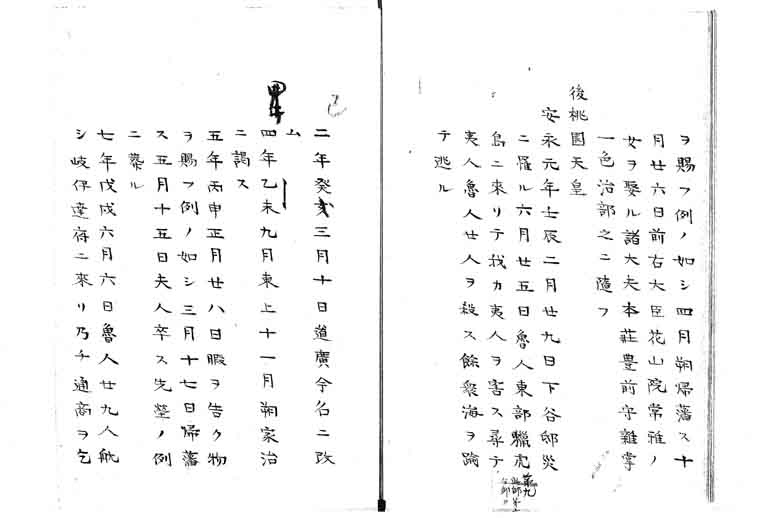 ヲ賜フ例ノ如シ四月朔帰藩ス十
月廿六日前右大臣花山院常雅ノ
女ヲ娶ル諸大夫本莊豊前守雜掌
一色治部之ニ隨フ
後桃園天皇
安永元年壬辰二月廿九日下谷邸災
ニ罹ル六月廿五日魯人東部獵虎
島ニ來リテ我カ夷人ヲ害ス尋テ
夷人魯人廿人ヲ殺ス餘衆海ヲ踰
テ逃ル
二年癸三月十日道廣今名ニ改
ム
四年乙未九月東上十一月朔家治
ニ謁ス
五年丙申正月廿八日暇ヲ告ク物
ヲ賜フ例ノ如シ三月十七日帰藩
ス五月十五日夫人卒ス先塋ノ例
ニ葬ル
七年戊戌六月六日魯人廿九人舩
シ岐伊達府ニ來リ乃チ通商ヲ乞